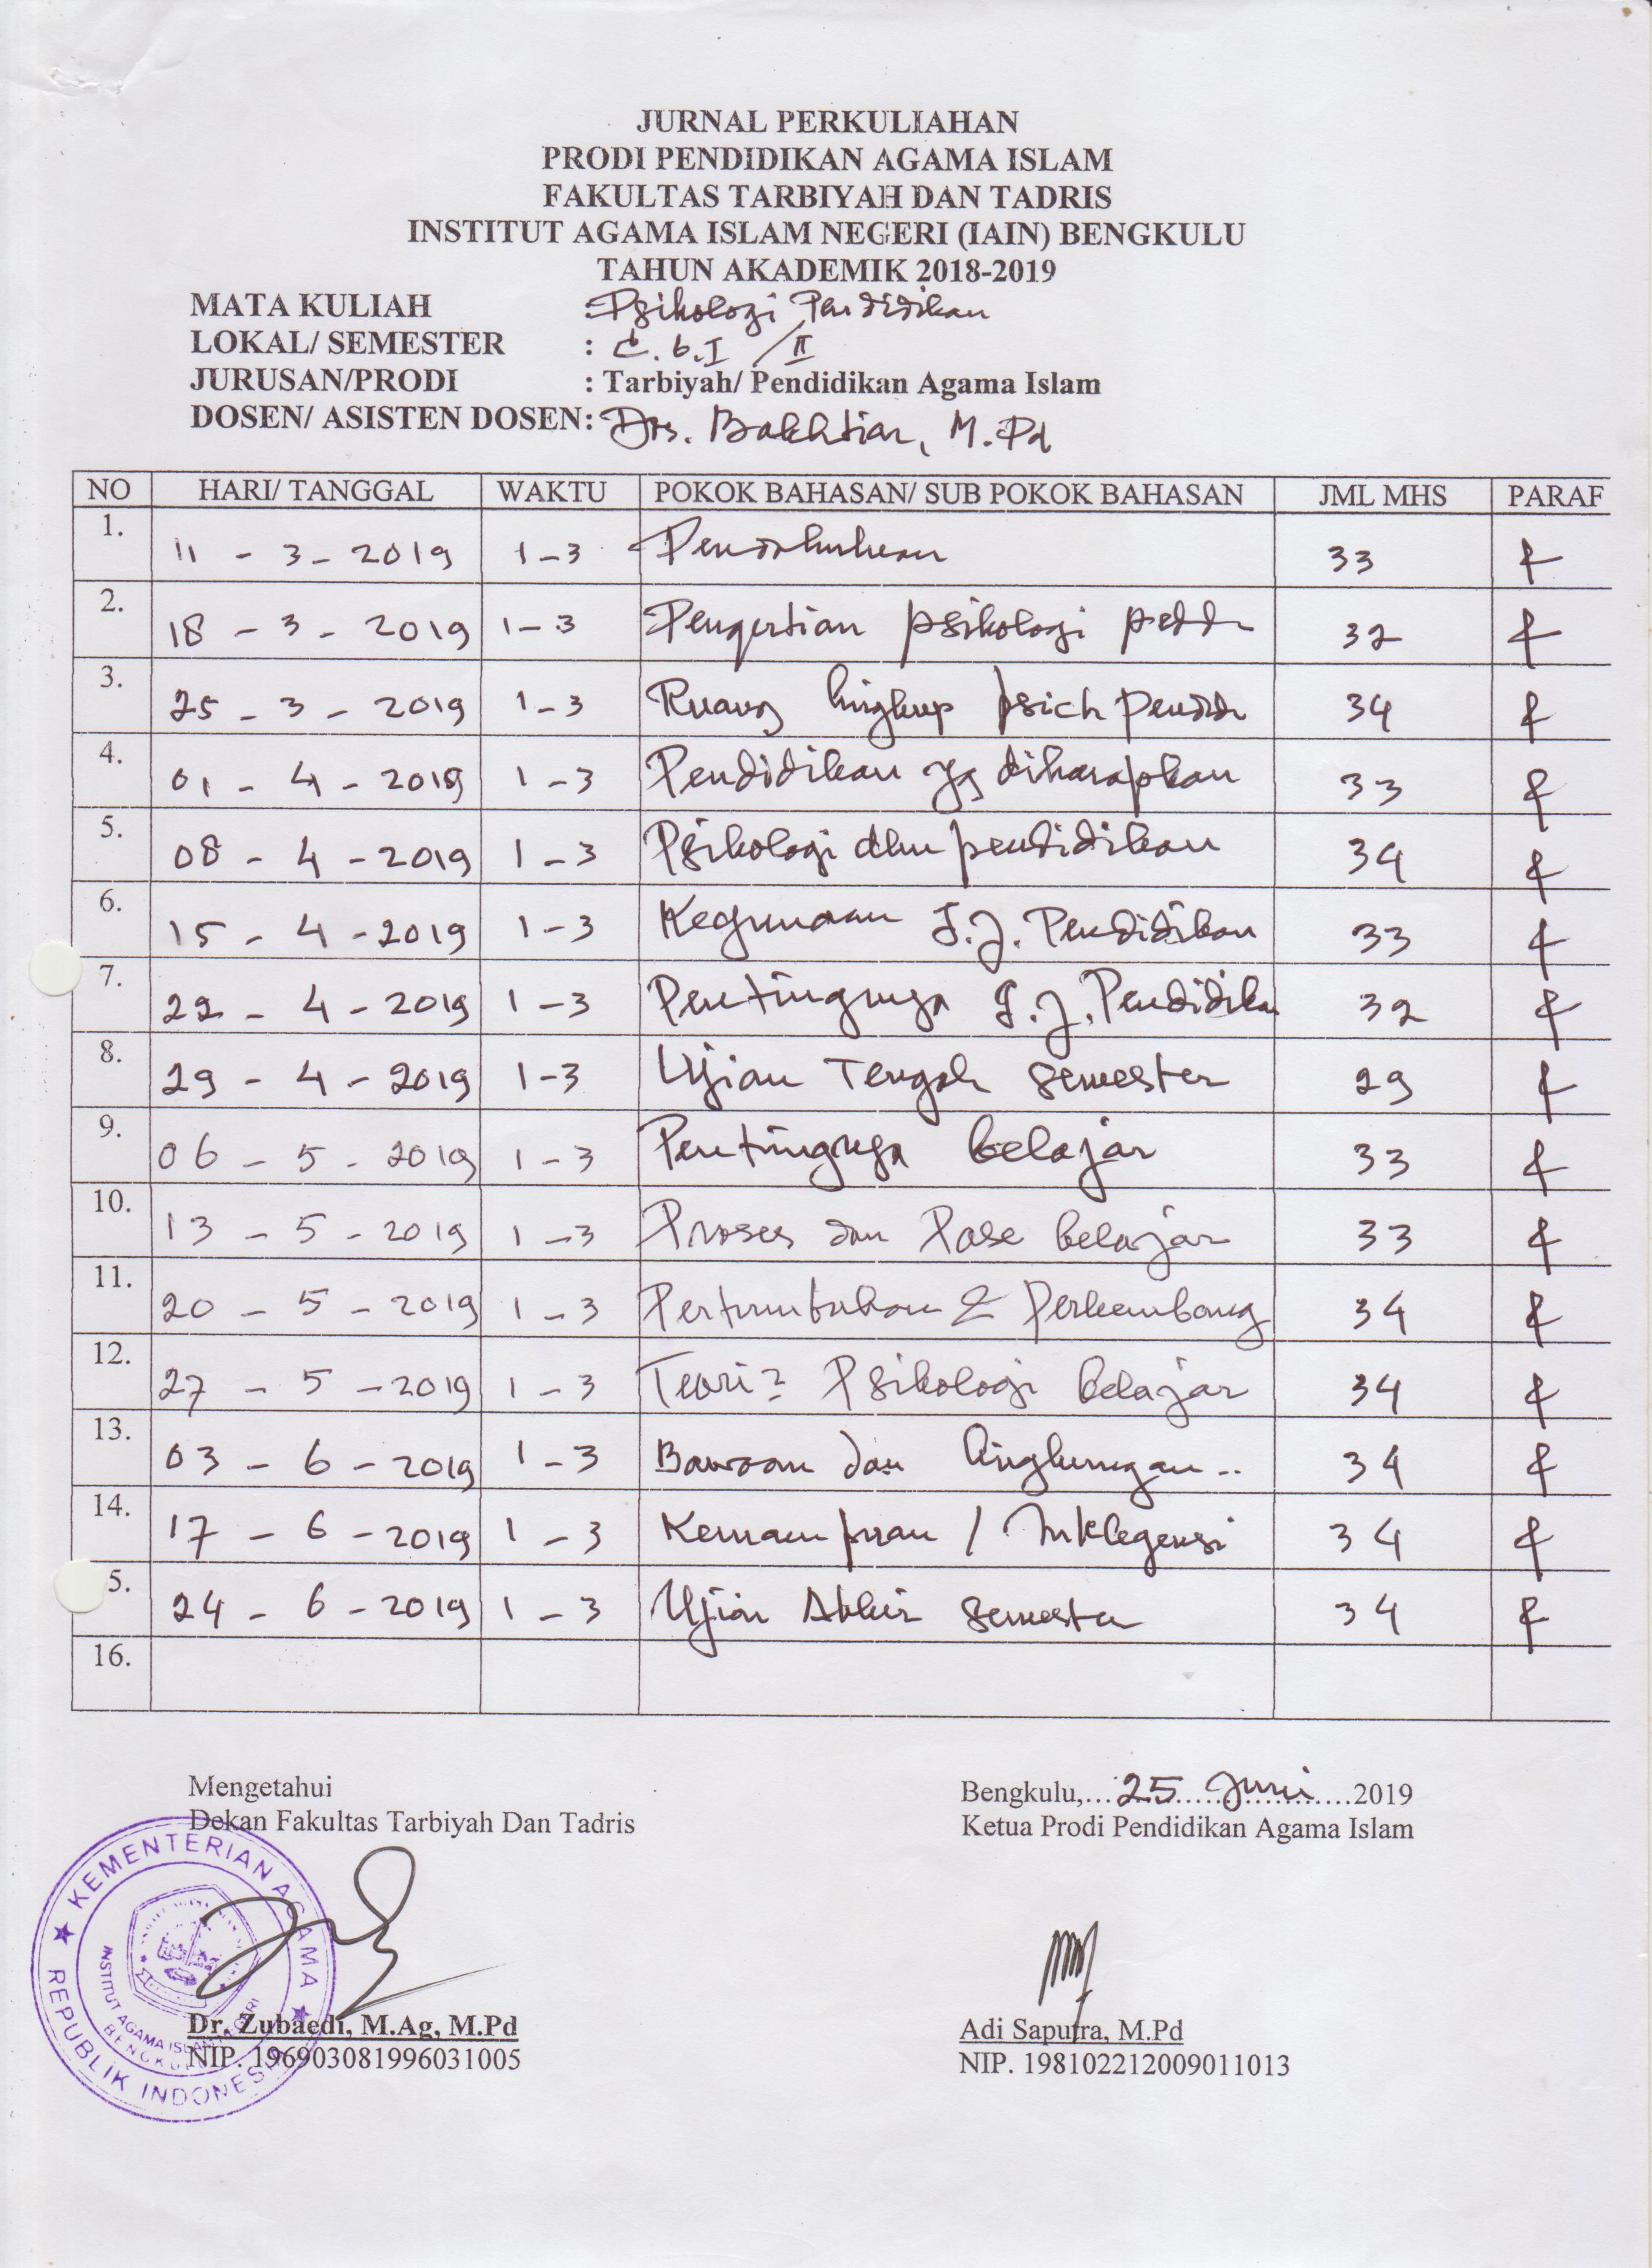 JURNAL PERKULIAHAN
PRODI PENDIDIKAN AGAMA ISLAM
FAKULTAS TARBIYAH DAN TADRIS
INSTITUT AGAMA ISLAM NEGERI (IAIN) BENGKULU
TAHUN AKADEMIK 2018-2019
MATA KULIAH : Psikologi Pendidikan
LOKAL/ SEMESTER : C.6.I / II
JURUSAN/PRODI : Tarbiyah/ Pendidikan Agama Islam
DOSEN/ ASISTEN DOSEN: Drs. Bakhtiar, M.Pd
NO HARI/ TANGGAL WAKTU POKOK BAHASAN/ SUB POKOK BAHASAN JML MHS PARAF
1. 11 - 3 - 2019 1-3 Pendahuluan 33
2. 18 - 3 - 2019 1-3 Pengertian psikologi 32
3. 25 - 3 - 2019 1-3 Ruang lingkup 34
4. 01 - 4 - 2019 1-3 Pendidikan yg diharapkan 33
5. 08 - 4 - 2019 1-3 Psikologi dlm pendidikan 34
6. 15 - 4 - 2019 1-3 Kegunaan I.J. Pendidikan 33
7. 22 - 4 - 2019 1-3 Pentingnya I.J. Pendidika 32
8. 29 - 4 - 2019 1-3 Ujian Tengah semester 29
9. 06 - 5 - 2019 1-3 Pentingnya belajar 33
10. 13 - 5 - 2019 1-3 Proses dan Pase belajar 33
11. 20 - 5 - 2019 1-3 Pertumbuhan & Perkembang 34
12. 27 - 5 - 2019 1-3 Teori2 Psikologi belajar 34
13. 03 - 6 - 2019 1-3 Bawaan dan lingkungan .. 34
14. 17 - 6 - 2019 1-3 Kemampuan / Intelegensi 34
5. 24 - 6 - 2019 1-3 Ujian Akhir semester 34
16.
Mengetahui
Dekan Fakultas Tarbiyah Dan Tadris
Bengkulu,...25 Juni...2019
Ketua Prodi Pendidikan Agama Islam
KEMENTERIAN AGAMA
REPUBLIK INDONESIA
INSTITUT AGAMA ISLAM NEGERI
BENGKULU
Dr. Zubaedi, M.Ag, M.Pd
NIP. 196903081996031005
Adi Saputra, M.Pd
NIP. 198102212009011013